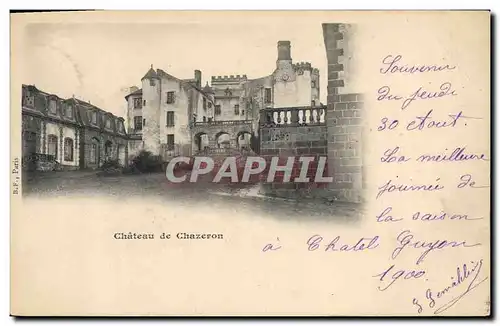 Souvenir
du jeudi
30 Août.
La meilleure
journée de
la saison
à Chatel Guyon
1900.
CPARAMA.COM
B.F., Paris
Château de Chazeron